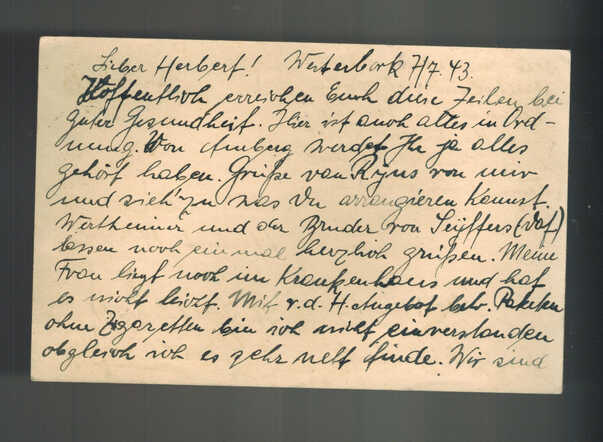 Lieber Herbert! Westerbork 7/7.43.
Hoffentlich erreichen Euch diese Zeilen bei
guter Gesundheit. Hier ist auch alles in Ord-
nung. Von Amberg werdet Ihr ja alles
gehört haben. Grüße van Ryns von mir
und sieh' zu was Du arrangieren kannst.
Wertheimer und der Bruder von Seyffers
lassen noch einmal herzlich grüßen. Meine
Frau liegt noch im Krankenhaus und hat
es nicht leicht. Mit v. d. H. Angebot betr. Paketen
ohne Zigaretten bin ich nicht einverstanden
obgleich ich es sehr nett finde. Wir sind